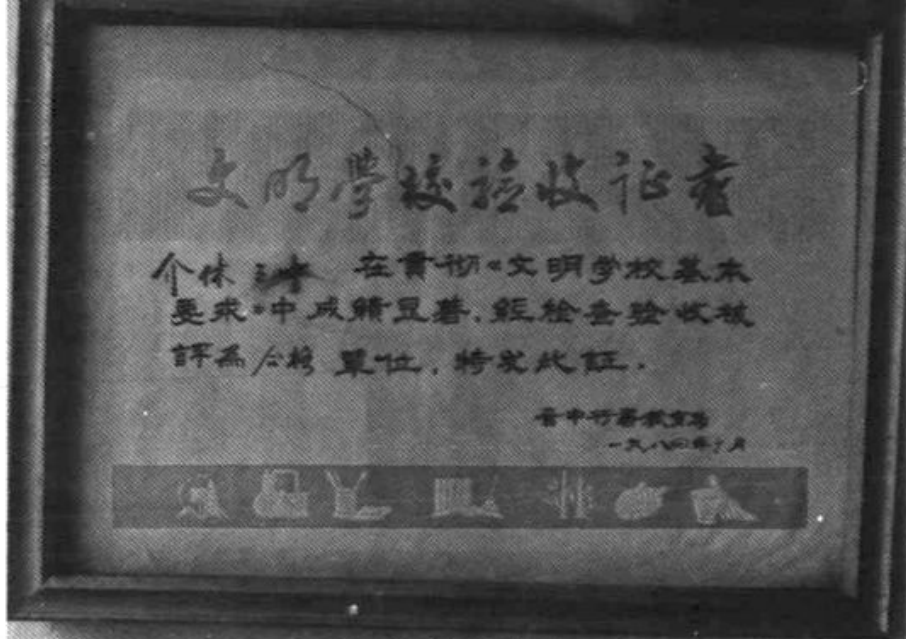 文明學校驗收证書
介休 三中 在貫彻《文明学校基本
要求》中成績显著，經检查验收被
評為 合格 單位，特发此証．
晋中行署教育局
一九八四年 月